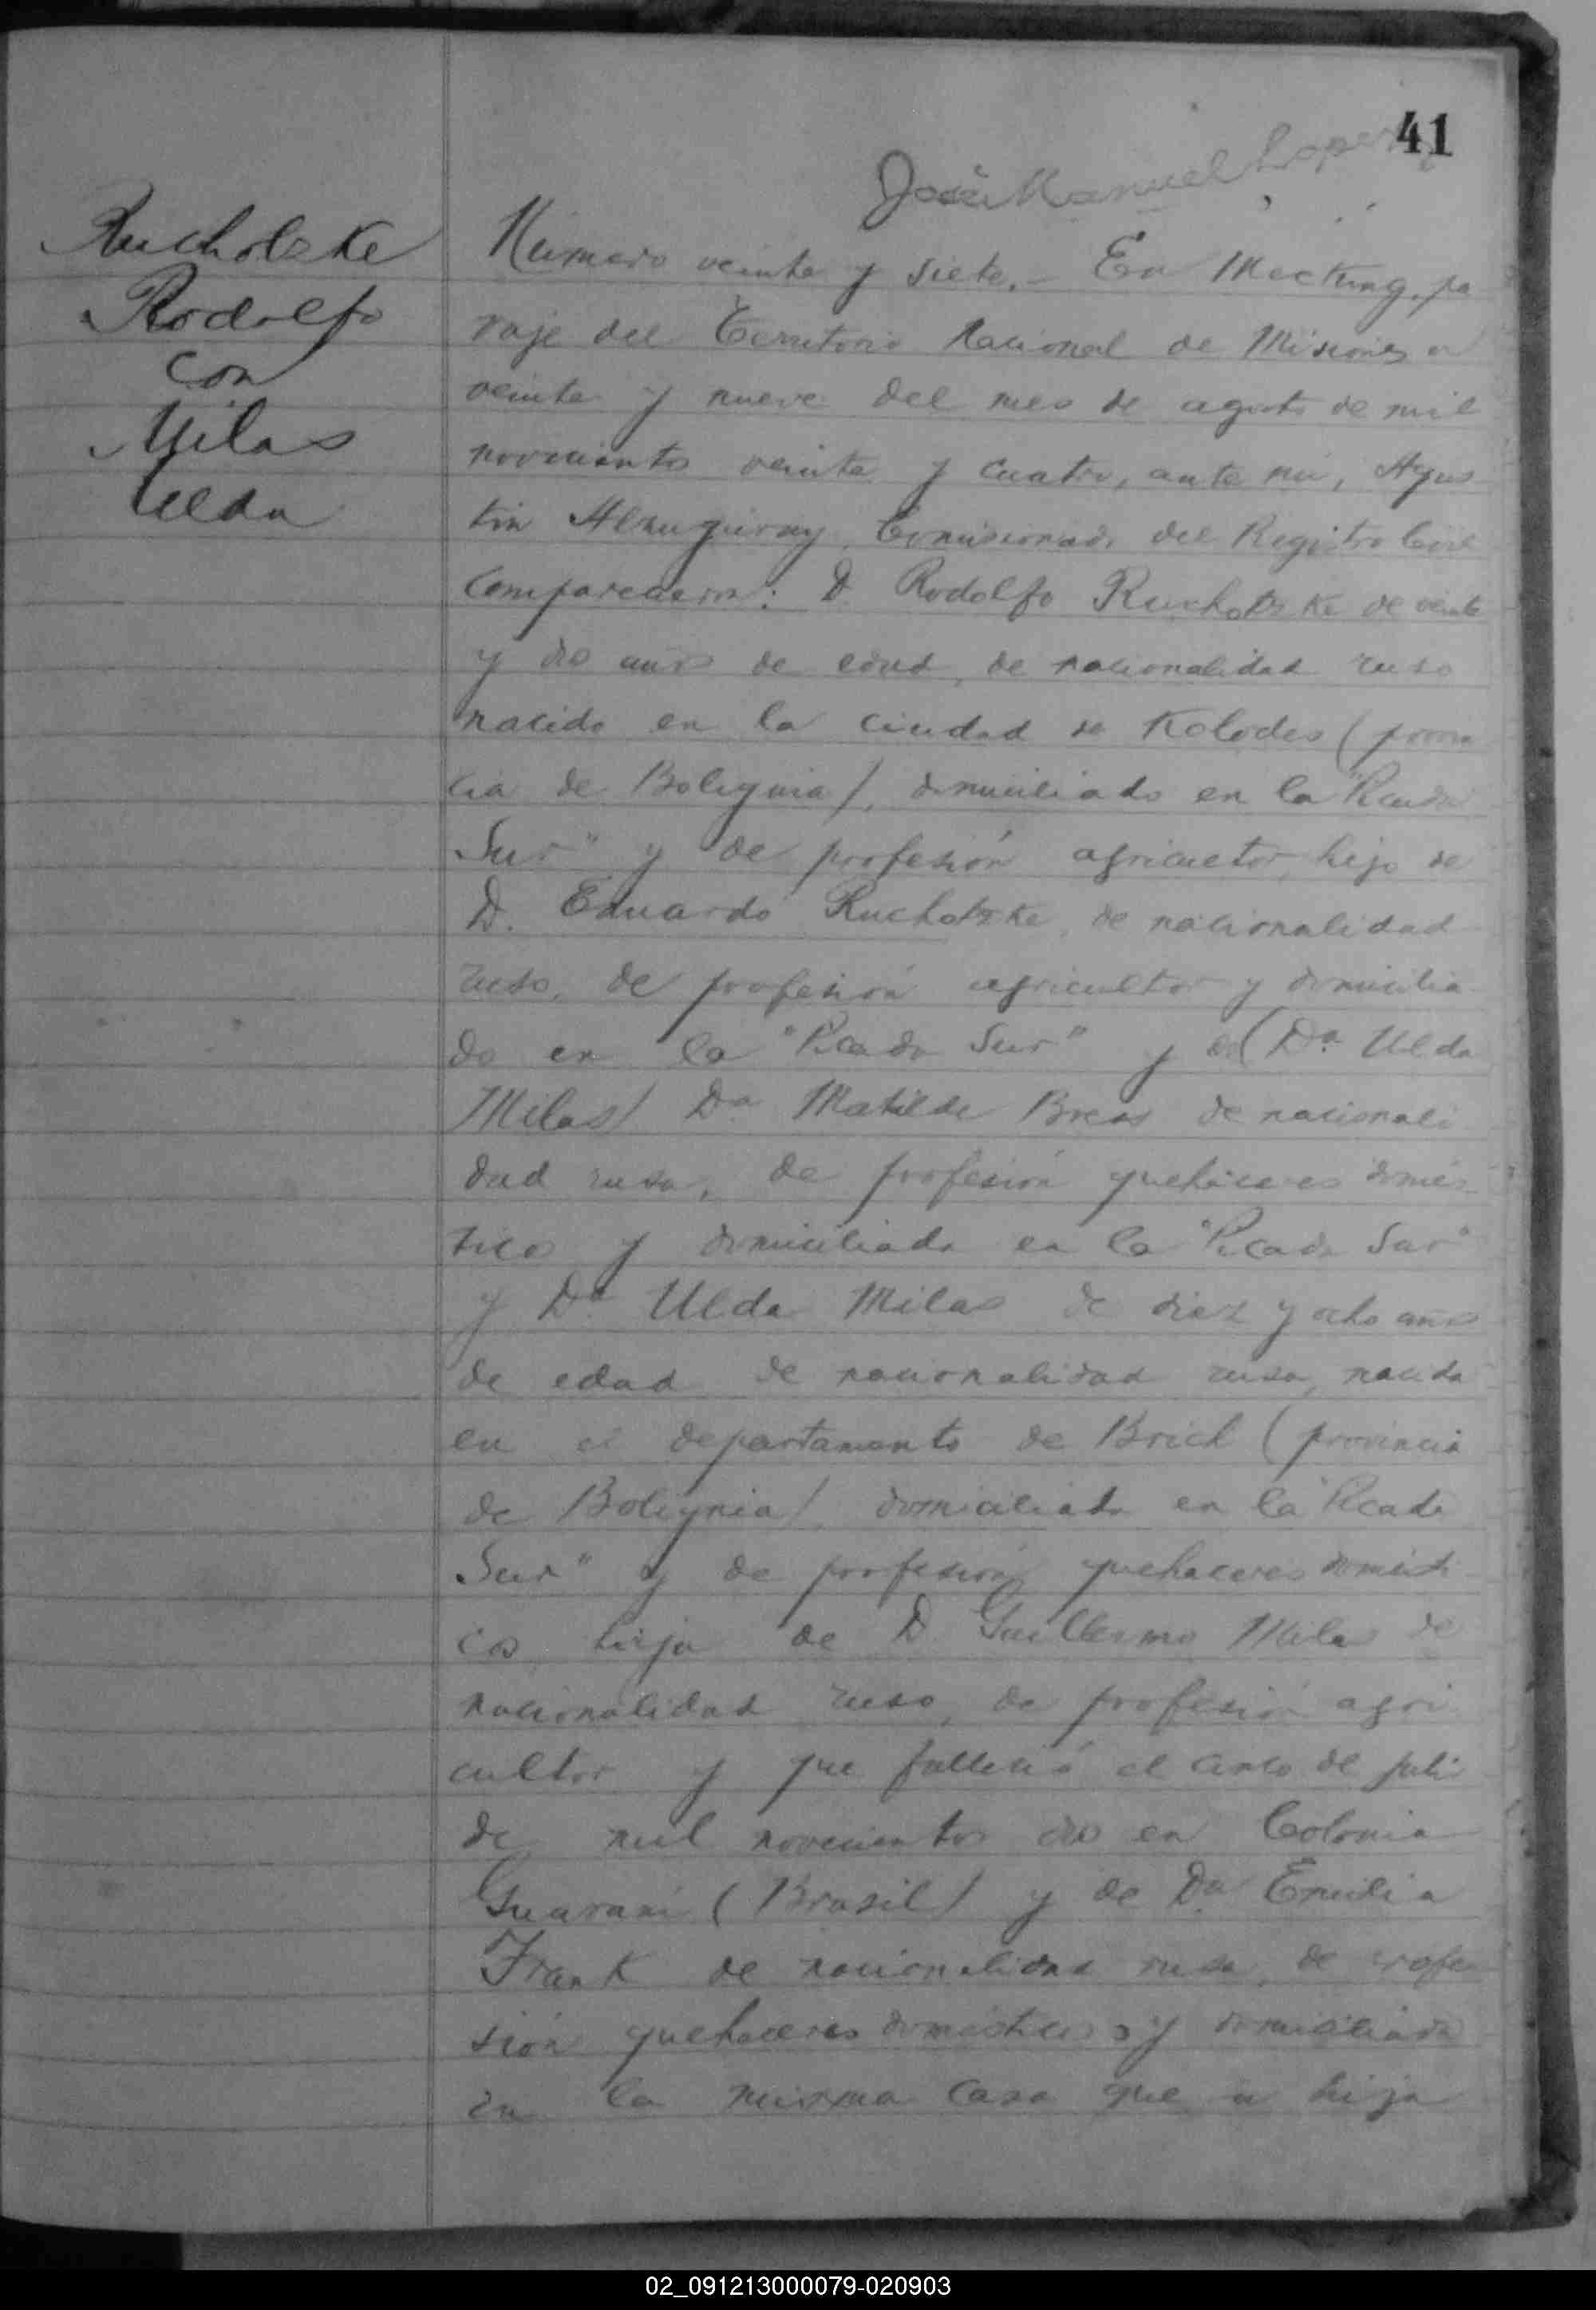 41
José Manuel Lopez
Rucholzke
Rodolfo
con
Milas
Ulda
Número veinte y siete.- En Mecking, pa
raje del Territorio Nacional de Misiones a
veinte y nueve del mes de agosto de mil
novecientos veinte y cuatro, ante mi, Agus
tin Comisionado del Registro Civil
comparecieron: D. Rodolfo Rucholzke de veinte
y dos años de edad, de nacionalidad ruso
nacido en la ciudad de Kolodes (provin
cia de Bolignia), domiciliado en la "Picada
Sur" y de profesión agricultor, hijo de
D. Eduardo Rucholzke, de nacionalidad
ruso, de profesión agricultor y domicilia
do en la "Picada Sur" y de (Da. Ulda
Milas) Da Matilde de nacionali
dad rusa, de profesión quehaceres domés
ticos y domiciliada en la "Picada Sur"
y Da Ulda Milas de diez y ocho años
de edad de nacionalidad rusa, nacida
en el departamento de Brich (provincia
de Bolignia) domiciliada en la "Picada
Sur" y de profesión quehaceres domésti
cos, hija de D. Guillermo Milas de
nacionalidad ruso, de profesión agri
cultor y que falleció el cinco de julio
de mil novecientos dos en Colonia
Guaraní (Brasil) y de Da. Emilia
Frank de nacionalidad rusa, de profe
sión quehaceres domésticos y domiciliada
en la misma casa que su hija
02_091213000079-020903